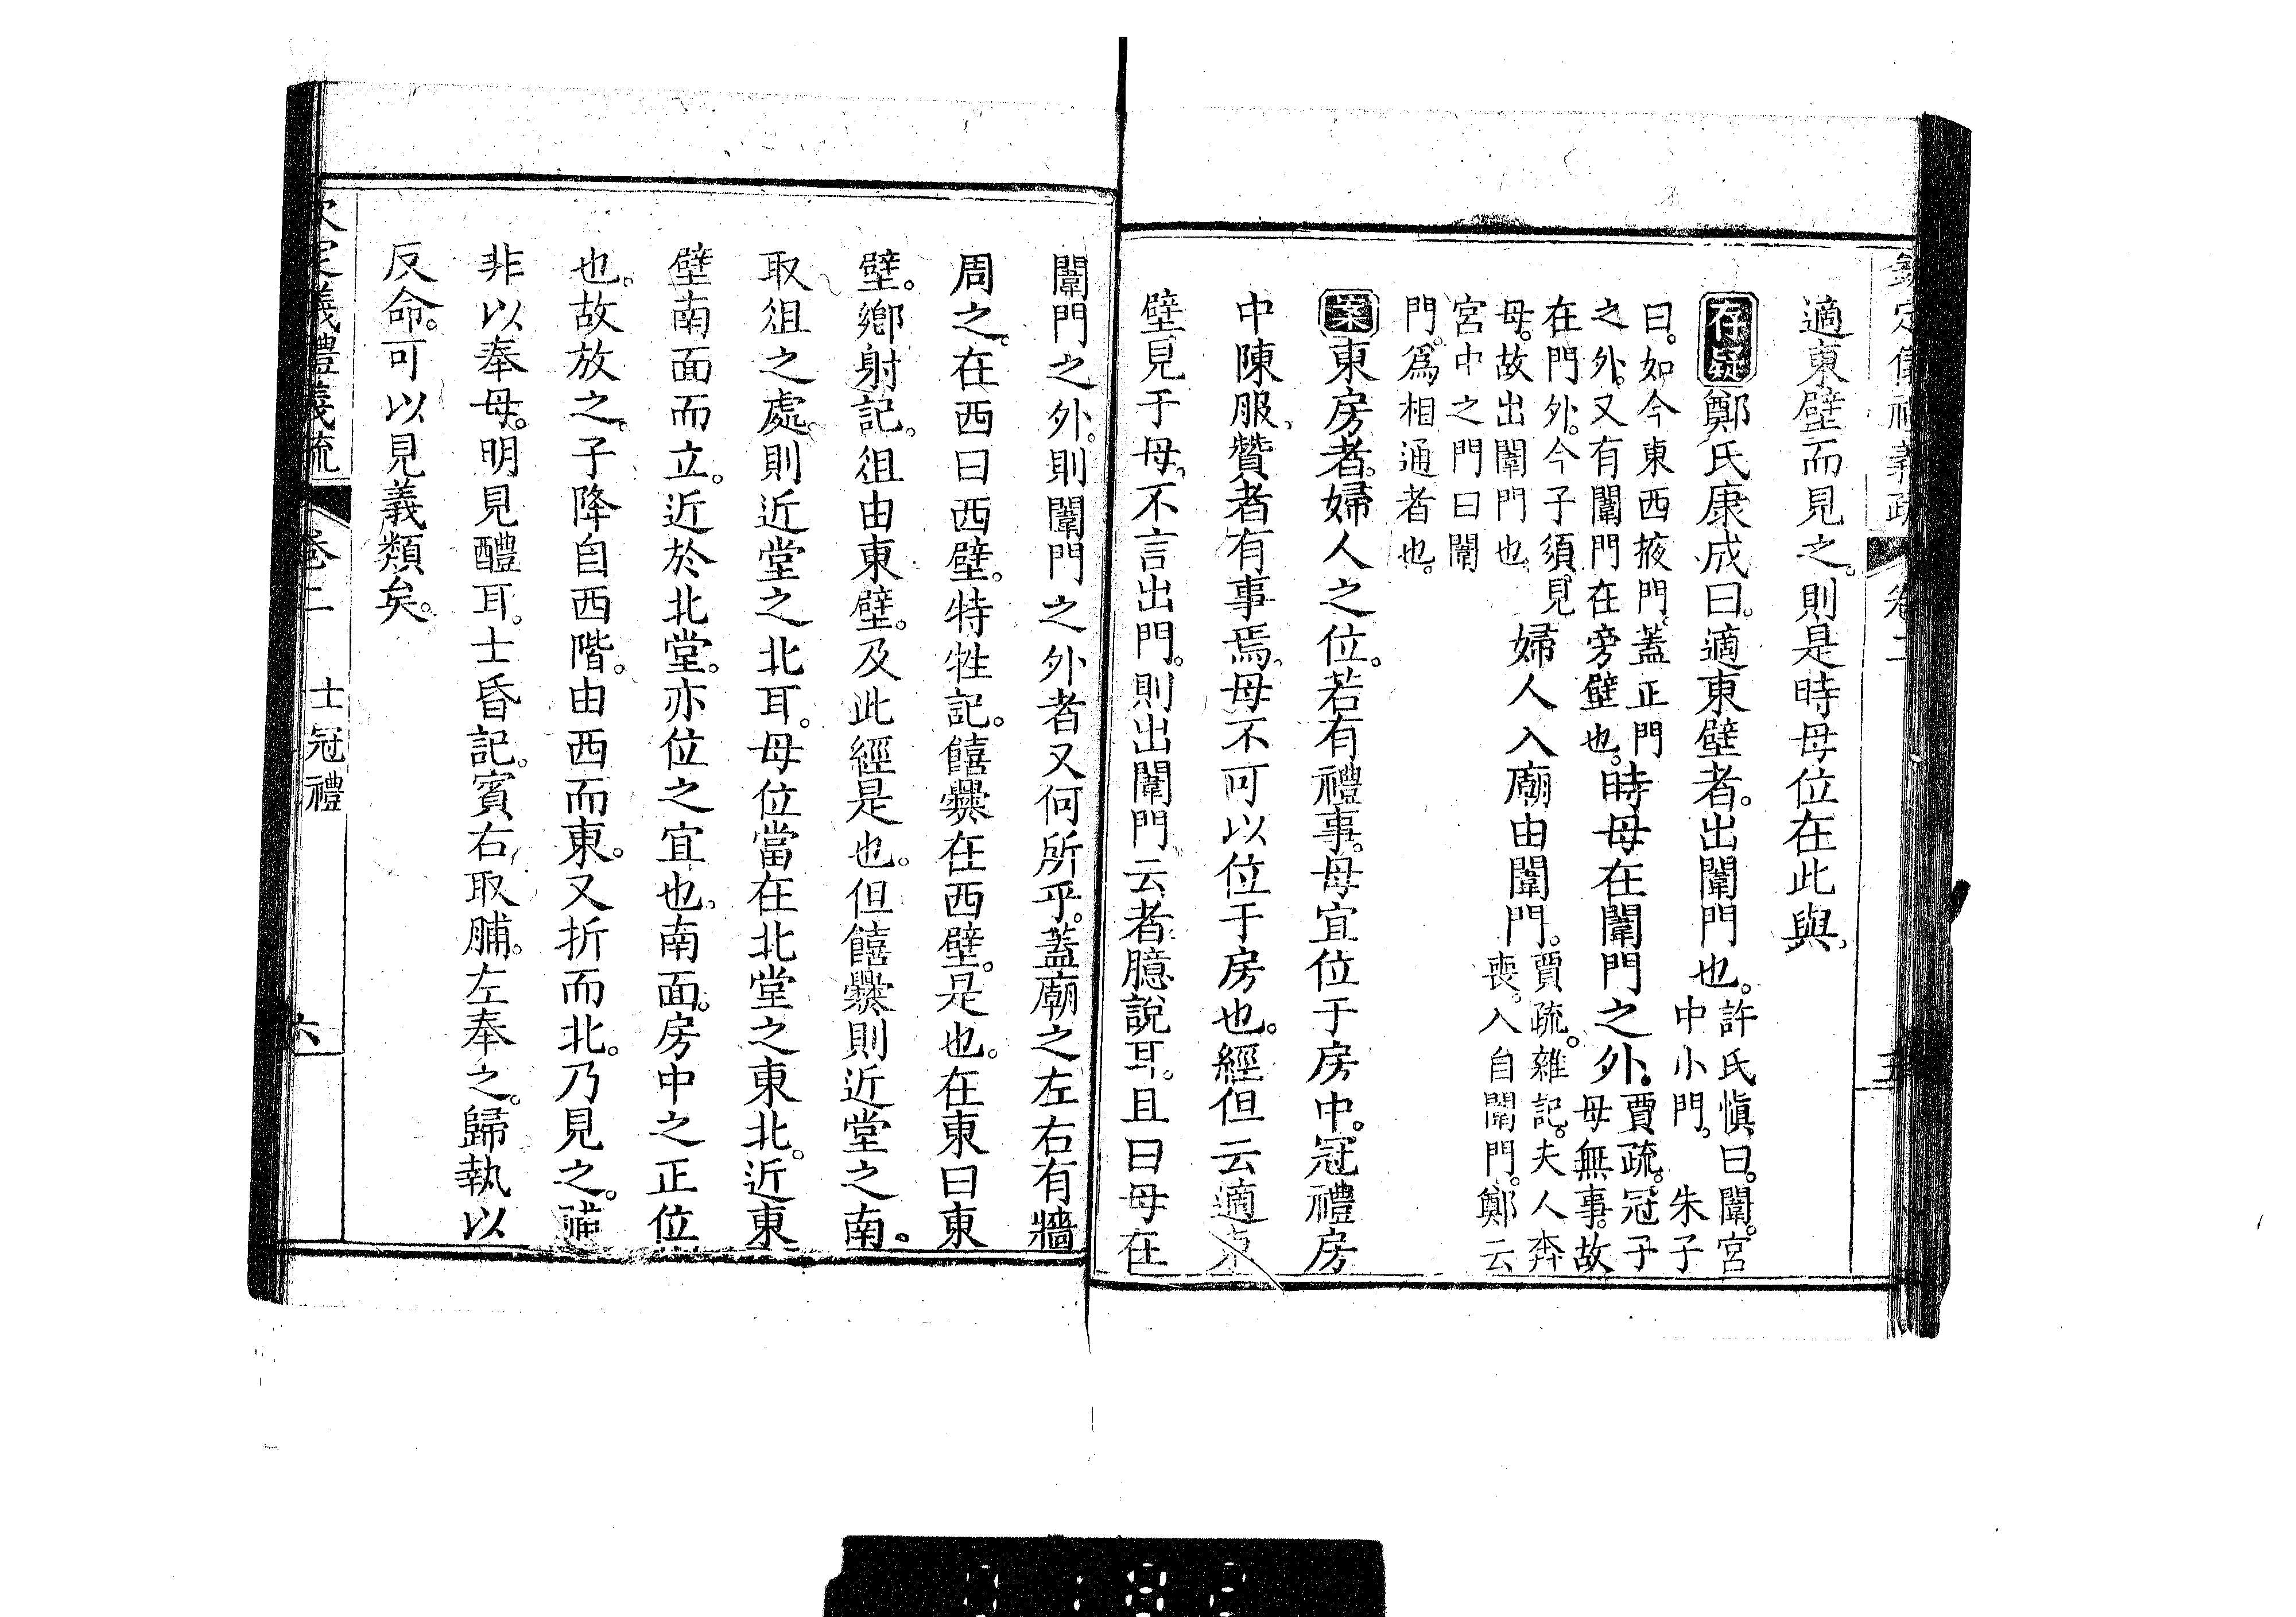 欽定儀禮義疏 卷二 五
適東壁而見之。則是時母位在此與。
存疑鄭氏康成曰。適東壁者。出闈門也。許氏慎曰。闈。宮
中小門。 朱子
曰。如今東西掖門。蓋正門
之外。又有闈門在旁壁也。時母在闈門之外。賈疏。冠子
母無事。故
在門外。今子須見
母。故出闈門也。婦人入廟由闈門。賈疏。雜記。夫人奔
喪。入自闈門。鄭云
宮中之門曰闈
門。爲相通者也。
案東房者。婦人之位。若有禮事。母宜位于房中。冠禮房
中陳服。贊者有事焉。母不可以位于房也。經但云適東
壁見于母。不言出門。則出闈門云者臆說耳。且曰母在
闈門之外。則闈門之外者又何所乎。蓋廟之左右有牆
周之。在西曰西壁。特牲記。饎爨在西壁。是也。在東曰東
壁。鄉射記。徂由東壁。及此經是也。但饎爨則近堂之南。
取徂之處。則近堂之北耳。母位當在北堂之東北。近東
壁南面而立。近於北堂。亦位之宜也。南面。房中之正位
也。故放之。子降自西階。由西而東。又折而北。乃見之。脯
非以奉母。明見醴耳。士昏記。賓右取脯。左奉之。歸執以
反命。可以見義類矣。
欽定儀禮義疏 卷二 士冠禮 六